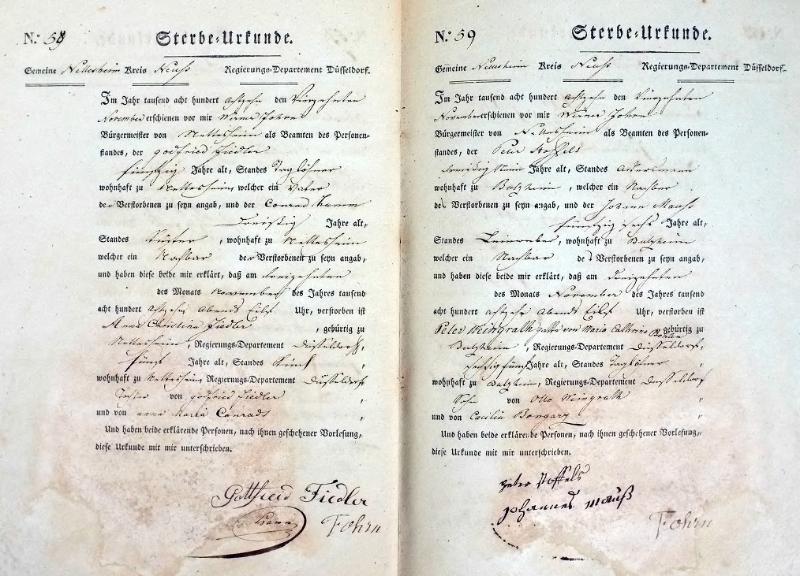 N.º 58 Sterbe-Urkunde.
Gemeine Nettesheim Kreis Neuss Regierungs-Departement Düsseldorf.
Im Jahr tausend acht hundert achtzehn den vierzehnten
November erschienen vor mir Johan
Bürgermeister von Nettesheim als Beamten des Personen-
standes, der godfried Fiedler
fünfzig Jahre alt, Standes Taglöhner
wohnhaft zu Nettesheim, welcher ein Vater
der Verstorbenen zu seyn angab, und der Conrad
Dreißig Jahre alt,
Standes Küster, wohnhaft zu Nettesheim
welcher ein Nachbar der Verstorbenen zu seyn angab,
und haben diese beide mir erklärt, daß am dreizehnten
des Monats November des Jahres tausend
acht hundert achtzehn Abends Eilf Uhr, verstorben ist
Anna Christina Fiedler, gebürtig zu
Nettesheim, Regierungs-Departement Düsseldorf,
fünf Jahre alt, Standes Kind
wohnhaft zu Nettesheim, Regierungs-Departement Düsseldorf
Tochter von godfried Fiedler
und von Maria Conrads
Und haben beide erklärende Personen, nach ihnen geschehener Vorlesung,
diese Urkunde mit mir unterschrieben.
Gottfried Fiedler
Fohrn
N.º 59 Sterbe-Urkunde.
Gemeine Nettesheim Kreis Neuss Regierungs-Departement Düsseldorf.
Im Jahr tausend acht hundert achtzehn den vierzehnten
November erschienen vor mir Johan
Bürgermeister von Nettesheim als Beamten des Personen-
standes, der Peter Stoffels
Jahre alt, Standes Ackersmann
wohnhaft zu Butzheim, welcher ein Nachbar
des Verstorbenen zu seyn angab, und der Johann Mauß
fünfzig sechs Jahre alt,
Standes Leinweber, wohnhaft zu Butzheim
welcher ein Nachbar des Verstorbenen zu seyn angab,
und haben diese beide mir erklärt, daß am dreizehnten
des Monats November des Jahres tausend
acht hundert achtzehn Abends Eilf Uhr, verstorben ist
Peter Wingrath gatte von Maria Catharina gebürtig zu
Butzheim, Regierungs-Departement Düsseldorf,
Jahre alt, Standes Taglöhner
wohnhaft zu Butzheim, Regierungs-Departement Düsseldorf
Sohn von Otto Wingrath
und von Cecilia Bongarz
Und haben beide erklärende Personen, nach ihnen geschehener Vorlesung,
diese Urkunde mit mir unterschrieben.
peter stoffels
johannes mauß
Fohrn